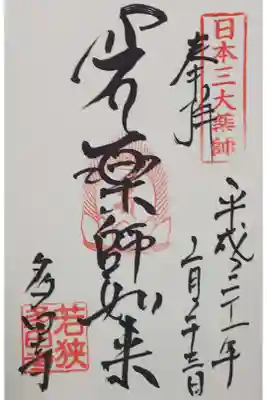 日本三大薬師
奉拝
薬師如来
平成二十一年
月二十三日
多田寺
若狭
多田寺